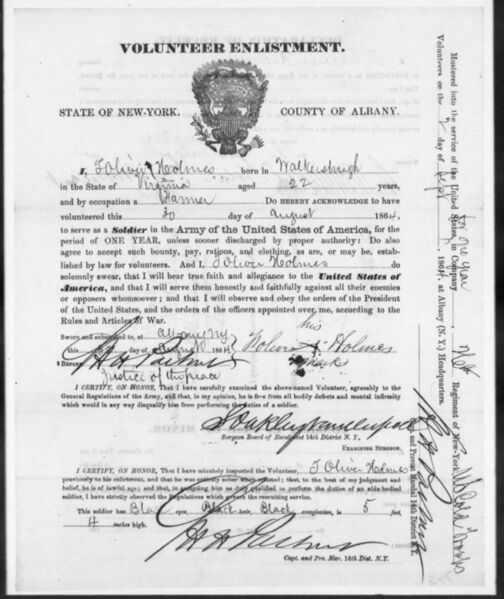 VOLUNTEER ENLISTMENT.
STATE OF NEW-YORK. COUNTY OF ALBANY.
I, J Oliver Holmes born in
in the State of Virginia aged 22 years,
and by occupation a Farmer Do HEREBY ACKNOWLEDGE to have
volunteered this 30 day of August 1864,
to serve as a Soldier in the Army of the United States of America, for the
period of ONE YEAR, unless sooner discharged by proper authority: Do also
agree to accept such bounty, pay, rations, and clothing, as are, or may be, estab-
lished by law for volunteers. And I, J Oliver Holmes do
solemnly swear, that I will bear true faith and allegiance to the United States of
America, and that I will serve them honestly and faithfully against all their enemies
or opposers whomsoever; and that I will observe and obey the orders of the President
of the United States, and the orders of the officers appointed over me, according to the
Rules and Articles of War.
Sworn and subscribed to, at Albany NY
this day of August 1864
BEFORE
his
Holmes
mark
Justice of the peace
I CERTIFY, ON HONOR, That I have carefully examined the above-named Volunteer, agreeably to the
General Regulations of the Army, and that, in my opinion, he is free from all bodily defects and mental infirmity
which would in any way disqualify him from performing the duties of a soldier.
Surgeon Board of Enrollment 14th District N.Y.
EXAMINING SURGEON.
I CERTIFY, ON HONOR, That I have minutely inspected the Volunteer, J Oliver Holmes
previously to his enlistment, and that he was entirely sober when enlisted; that, to the best of my judgment and
belief, he is of lawful age; and that, in accepting him as duly qualified to perform the duties of an able-bodied
soldier, I have strictly observed the Regulations which govern the recruiting service.
This soldier has Black eyes, Black hair, Black complexion, is 5 feet
4 inches high.
Capt. and Pro. Mar. 14th Dist. N.Y.
Mustered into the service of the United States, for one year
Volunteers on the 2 day of Sept, 1864, at Albany (N. Y.) Headquarters.
in Company , Regiment of New-York
and Provost Marshal 14th District N.Y.